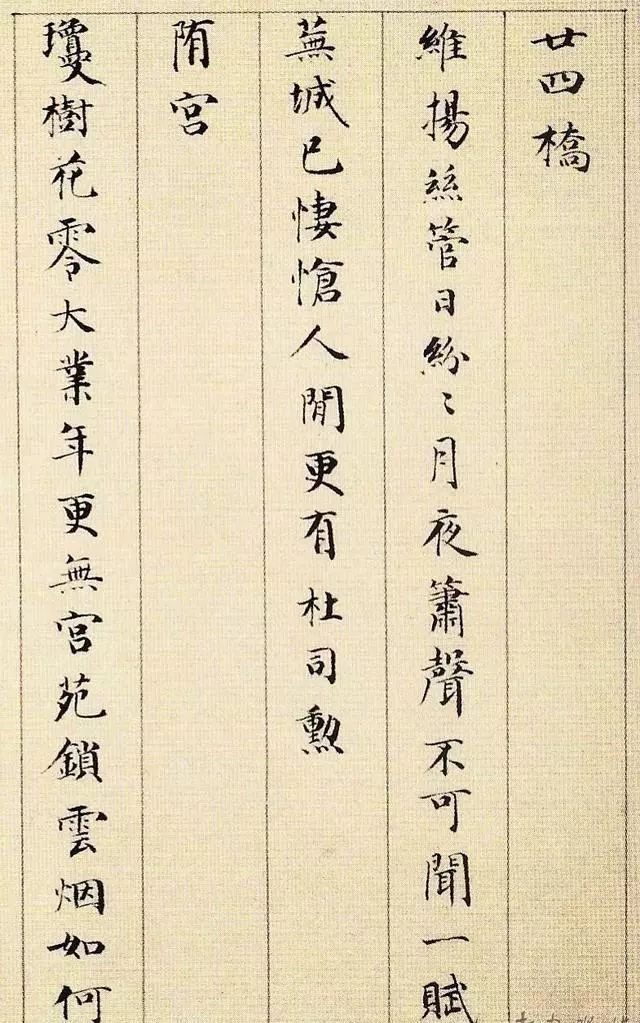 廿四橋
維揚絲管日紛〻月夜簫聲不可聞一賦
蕪城已悽愴人閒更有杜司勳
隋宮
瓊樹花零大業年更無宮苑鎖雲烟如何